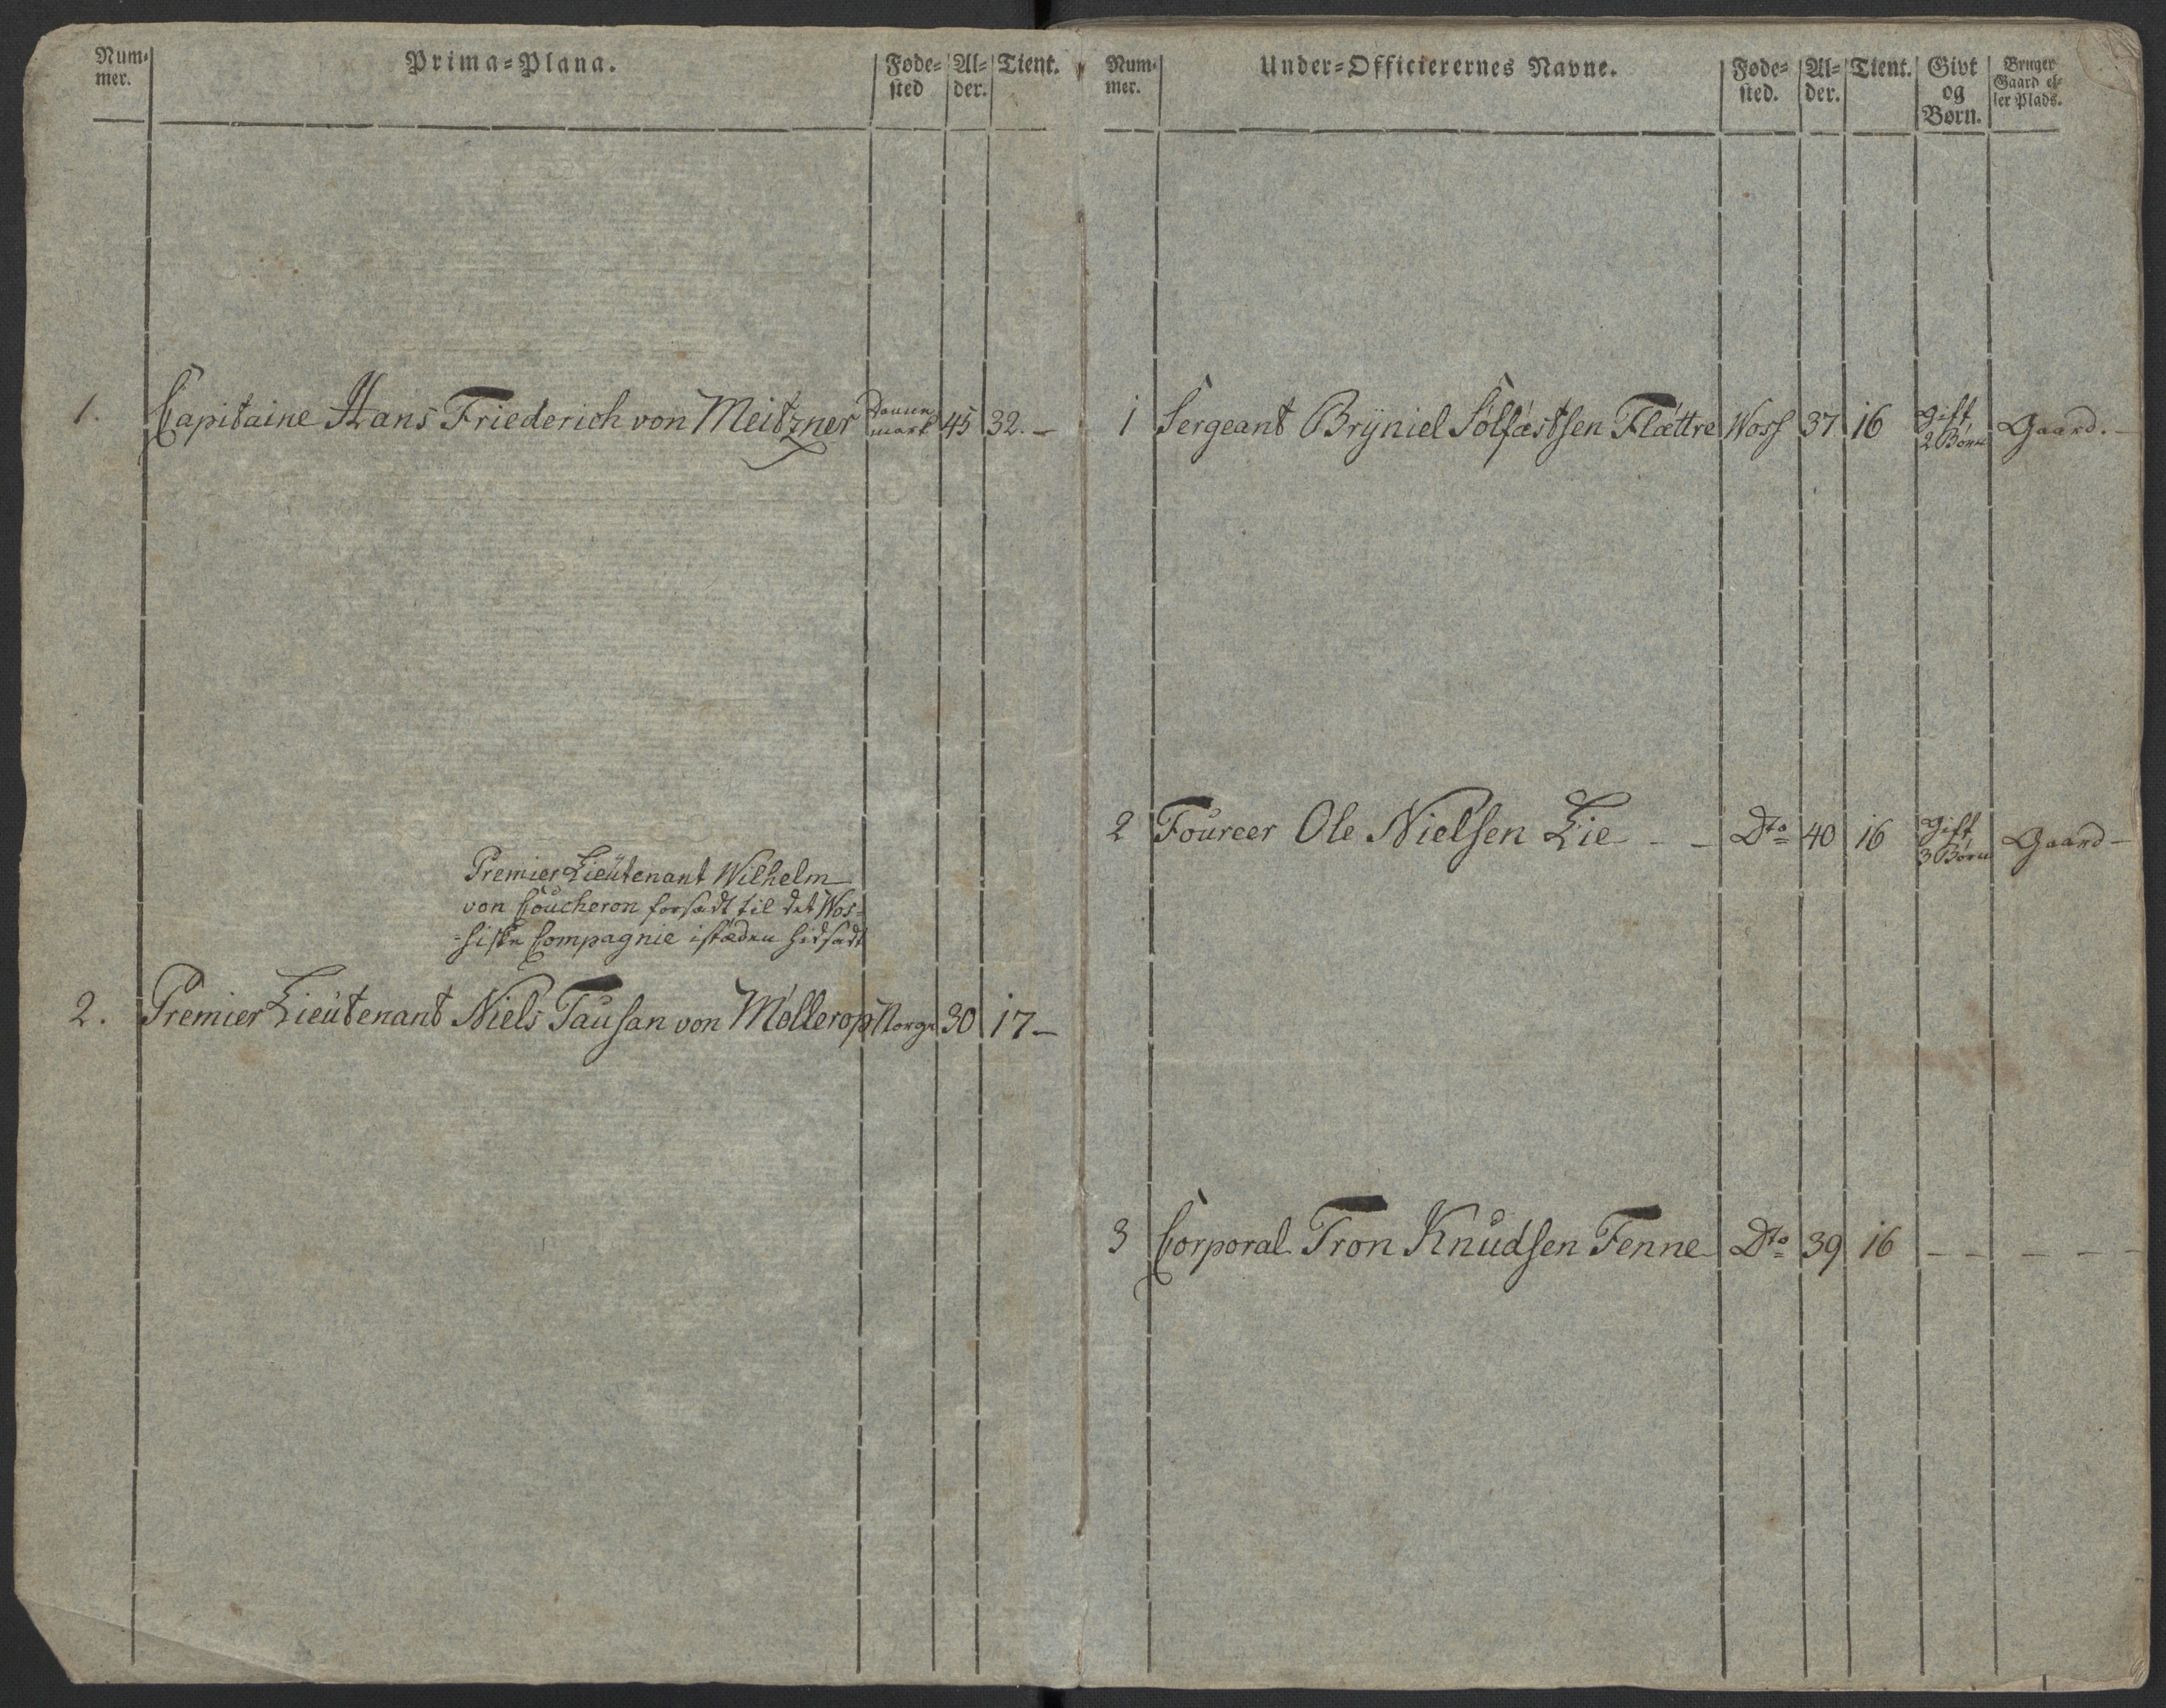 Num- Prima-Plana. Føde- Al- Tient.
mer. sted der.
1. Capitaine Hans Friederich von Meitzner Danne 45 32. –
mark
Premier Lieütenant Wilhelm
von Coucheron forsadt til det Wos-
-siske Compagnie isteden hidsadt
2. Premier Lieütenant Niels Tausan von Møllerop Norge 30 17 –
Num- Under-Officierernes Navne. Føde- Al- Tient. Givt Bruger
mer. sted. der. og Gaard el-
Børn. ler Plads.
1 Sergeant Brÿniel Sølfæstsen Flættre Woss 37 16 Gift Gaard. –
2 Børn
2 Foureer Ole Nielsen Lie – – Dto 40 16 Gift Gaard –
3 Børn
3 Corporal Tron Knudsen Fenne Dto 39 16 – – – – –